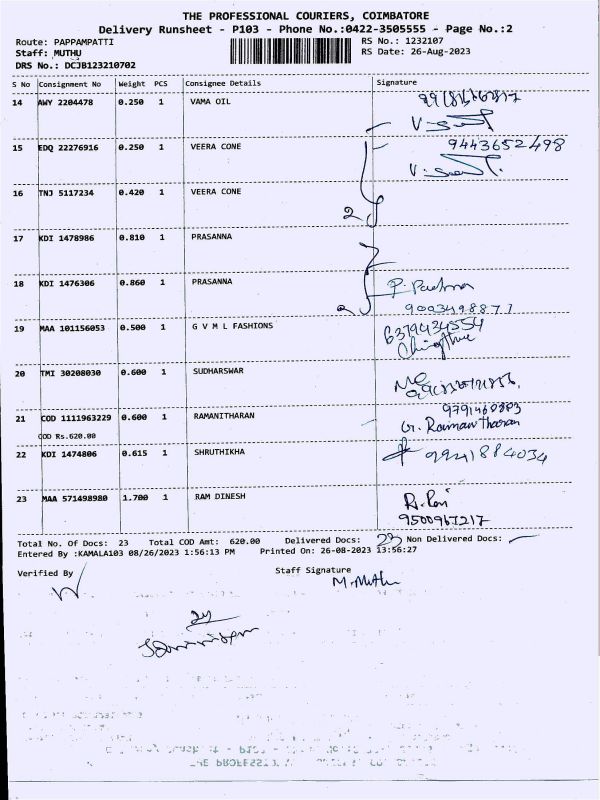 THE PROFESSIONAL COURIERS, COIMBATORE
Delivery Runsheet - P103 - Phone No.:0422-3505555 - Page No.:2
Route: PAPPAMPATTI
RS No.: 1232107
Staff: MUTHU
RS Date: 26-Aug-2023
DRS No.: DCJB123210702
S No Consignment No Weight PCS Consignee Details Signature
14 AWY 2204478 0.250 1 VAMA OIL
15 EDQ 22276916 0.250 1 VEERA CONE 9443652498
16 TNJ 5117234 0.420 1 VEERA CONE
2
17 KDI 1478986 0.810 1 PRASANNA
18 KDI 1476306 0.860 1 PRASANNA
9003498877
19 MAA 101156053 0.500 1 G V M L FASHIONS 6379434554
20 TMI 30208030 0.600 1 SUDHARSWAR
21 COD 1111963229 0.600 1 RAMANITHARAN
COD Rs.620.00
G. Raman Tharan
22 KDI 1474806 0.615 1 SHRUTHIKHA 9941884034
23 MAA 571498980 1.700 1 RAM DINESH
Total No. Of Docs: 23 Total COD Amt: 620.00 Delivered Docs: 23 Non Delivered Docs:
Entered By :KAMALA103 08/26/2023 1:56:13 PM Printed On: 26-08-2023 13:56:27
Verified By
Staff Signature
M. Muthu